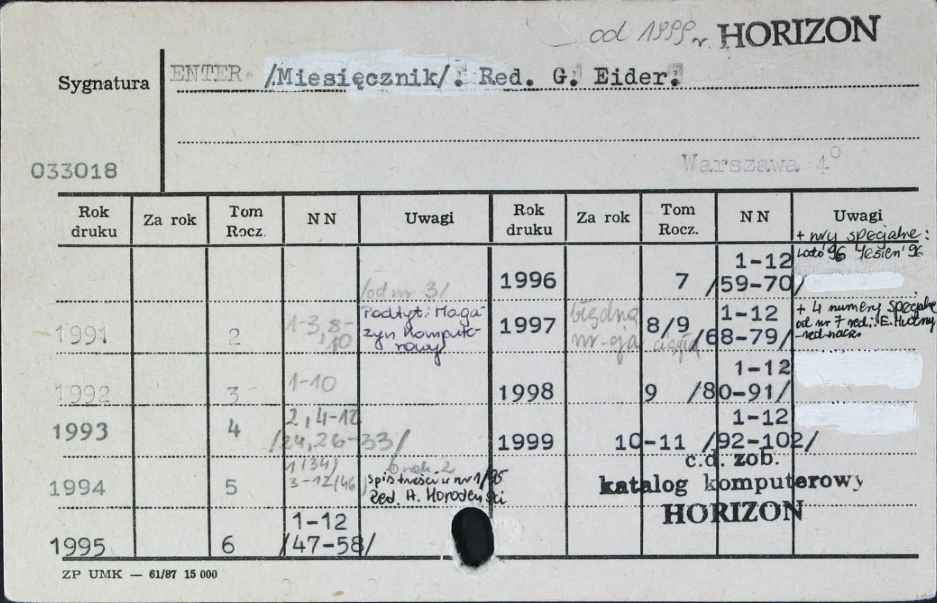 od 1999 r. HORIZON
Sygnatura ENTER /Miesięcznik/. Red. G. Eider.
033018
Warszawa 4°
Rok druku Za rok Tom Rocz. NN Uwagi Rok druku Za rok Tom Rocz. NN Uwagi
+ nry specjalne:
Lato '96 Jesień '96
1996 7 1-12 /59-70/
/od nr 3/
1991 2 1-3, 8-10 Podtyt: Maga-
zyn Kompute-
rowy
1997 błędna nr-cja ciągła 8/9 1-12 /68-79/ + 4 numery specjalne
od nr 7 red.: E.
red. nacz.
1992 3 1-10
1998 9 1-12 /80-91/
1993 4 2, 4-12 /24, 26-33/
1999 10-11 1-12 /92-102/
c.d. zob.
katalog komputerowy
HORIZON
1994 5 1(34) 3-12/46 brak 2
spis treści w nr 1/95
Red. H. Horodeński
1995 6 1-12 /47-58/
ZP UMK — 61/87 15 000